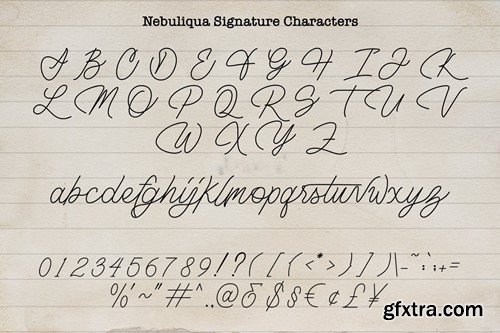 Nebuliqua Signature Characters
A B C D E F G H I J K
L M O P Q R S T U V
W X Y Z
abcdefghijklmopqrstuvwxyz
0123456789!?([(<*>)])/\|-~`:;+=
%'~"#^.,@&$§€¢£¥
gfxtra.com